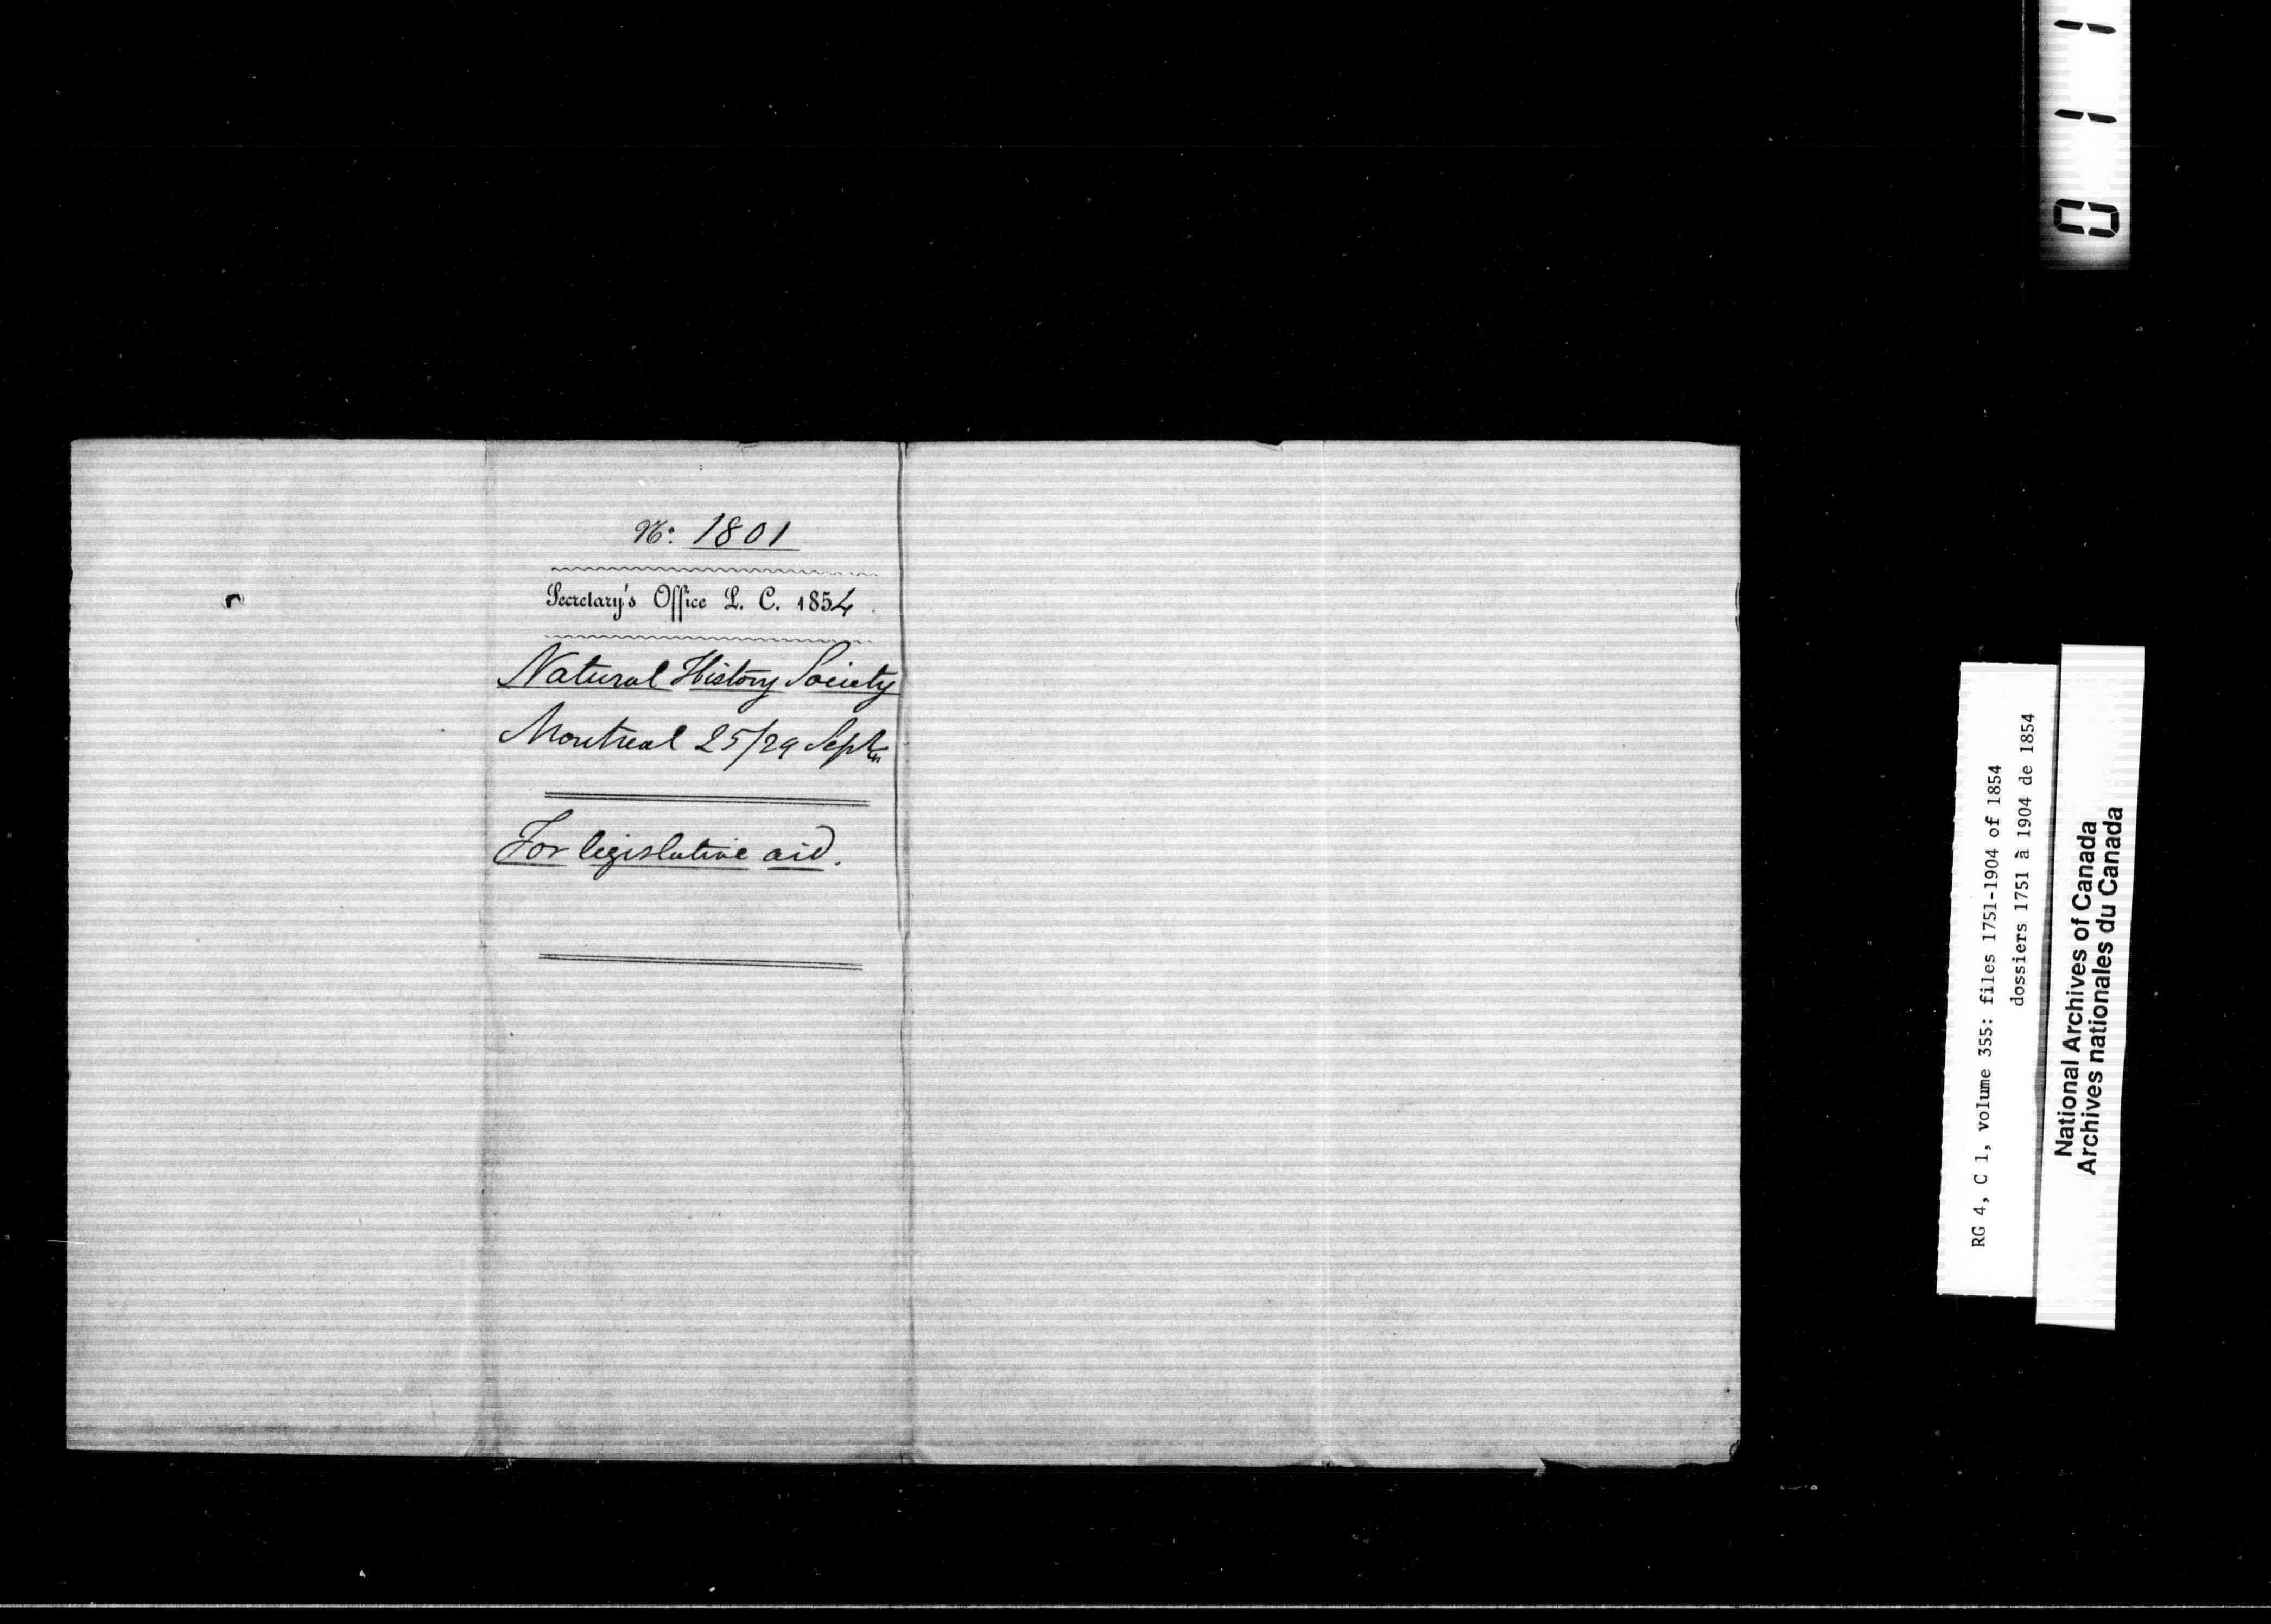 No. 1801
Secretary's Office L. C. 1854
Natural History Society
Montreal 25/29 Septr
For legislative aid.
0 1 1 1
RG 4, C 1, volume 355: files 1751-1904 of 1854
dossiers 1751 à 1904 de 1854
National Archives of Canada
Archives nationales du Canada